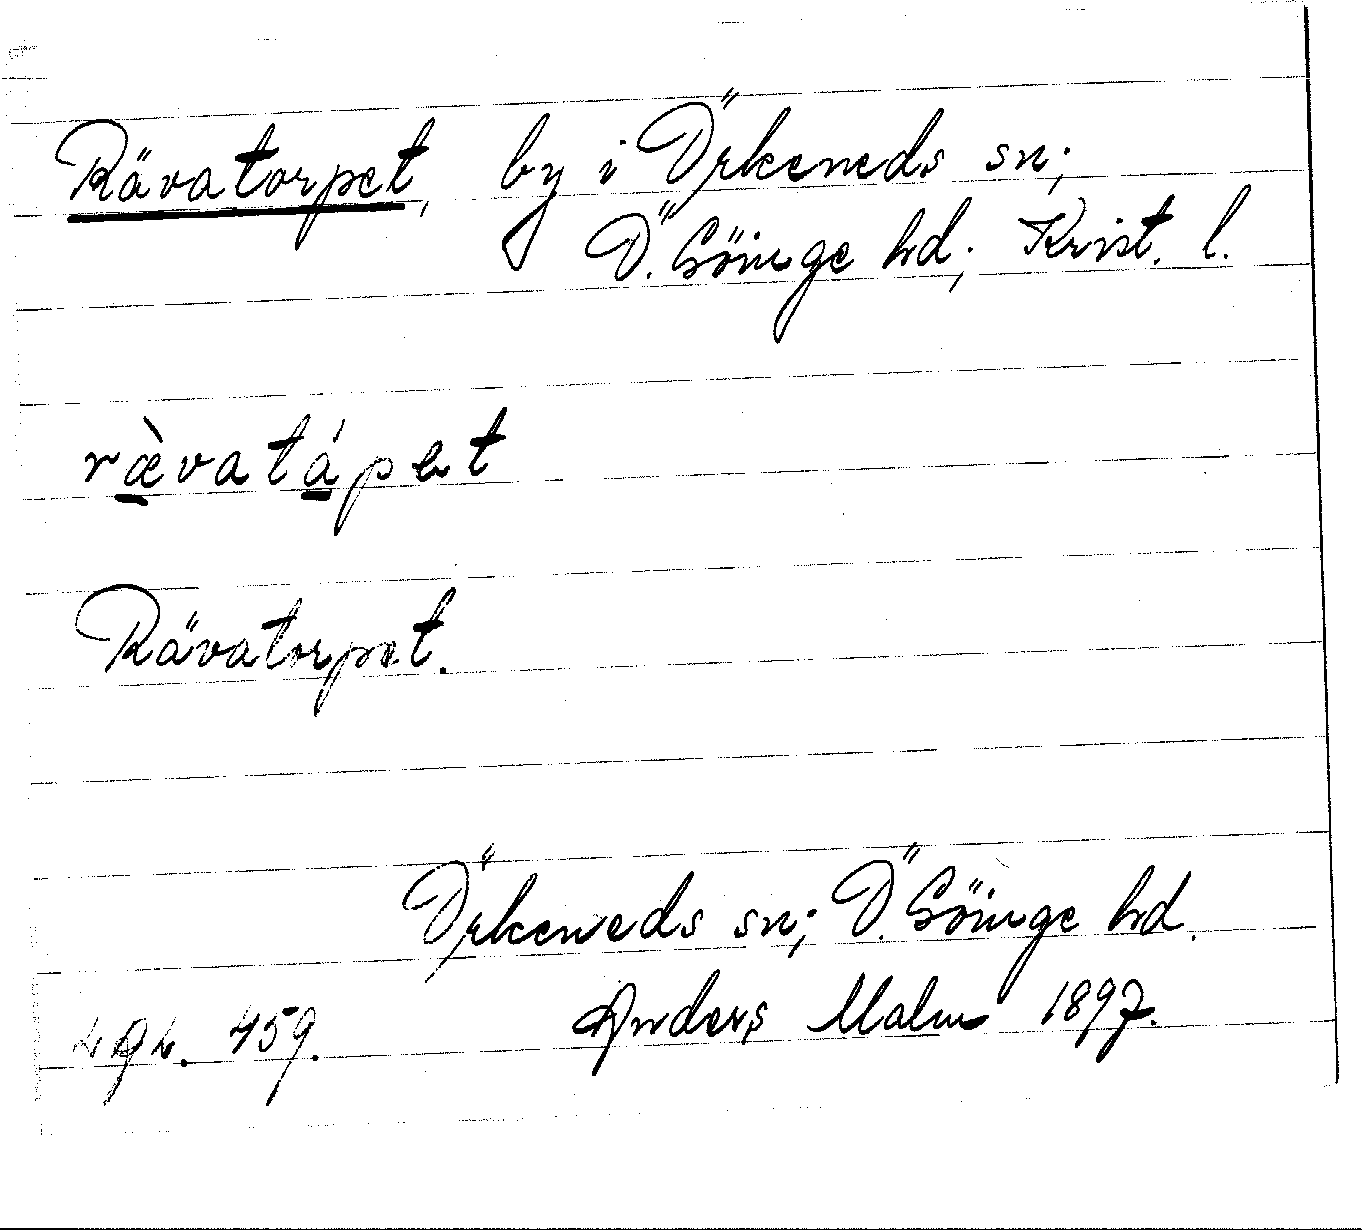 Rävatorpet, by i Örkeneds sn;
Ö. Göinge hd; Krist. l.
ræ̀vatápet
Rävatorpet.
Örkeneds sn; Ö. Göinge hd.
459. Anders Malm 1897.